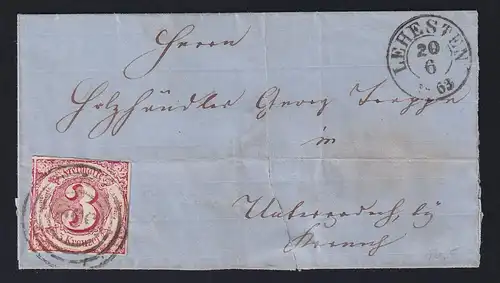 LEHESTEN
20
6
63
Herrn
Holzhändler Georg
in
Unterrodach by
3
KREUZER